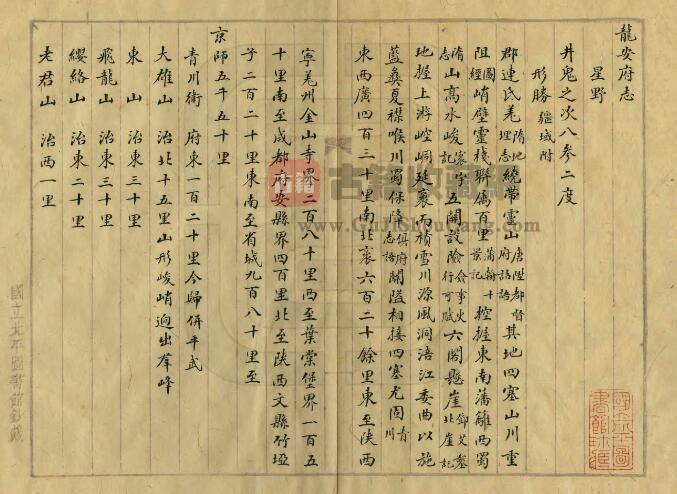 龍安府志
星野
井鬼之次八參二度
形勝 疆域附
郡連氐羌隋地理志繞帶靈山唐陞都督府誥語其地四塞山川重
阻圖經峭壁靈棧聯屬百里蒲翰十景記控握東南藩籬西蜀
隋志山高水峻寰宇記五關設險僉事火行可賦六閣懸崖鄧艾墓北崖記
地握上游崆峒延褒而積雪川源風洞涪江委曲以施
藍彝夏襟喉川蜀保障俱府志語關隘相接四塞尤固青川
東西廣四百三十里南北袤六百二十餘里東至陝西
寧羌州金山寺界二百八十里西至葉棠堡界一百五
十里南至成都府安縣界四百里北至陝西文縣竹埡
子二百二十里東南至省城九百八十里至
京師五千五十里
青川衛 府東一百二十里今歸併平武
大雄山 治北十五里山形峻峭迥出羣峰
東山 治東三十里
飛龍山 治東三十里
纓絡山 治東二十里
老君山 治西一里
國立北平圖書館收藏
www.GuJiShouCang.com